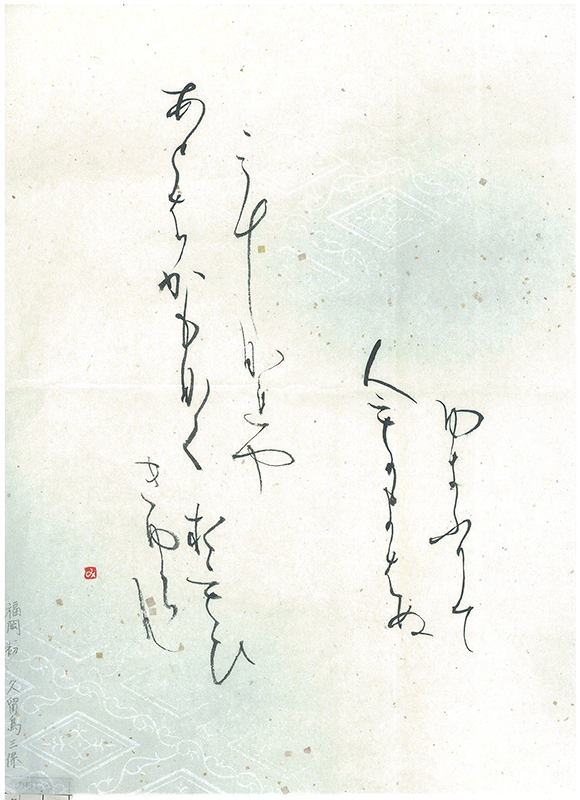 ゆきふりて
人もかよはぬ
みちなれや
あとはかもなく
おもひ
きゆらむ
み
福岡 初 久留島三保